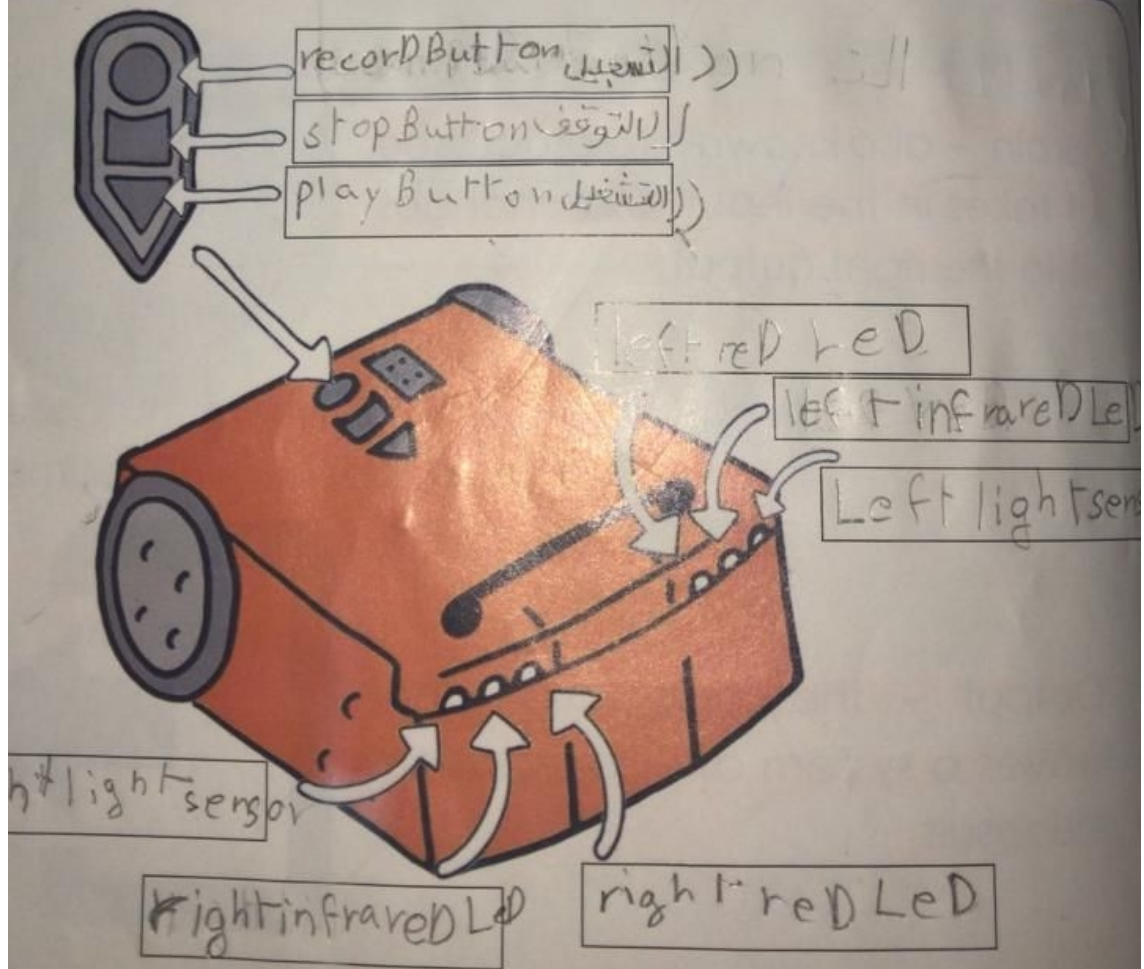 recorDButton التسجيل
stopButton التوقف
playButton التشغيل
left reD LeD
left infrareD LeD
Left light sen
ht light sensor
rightinfrareD LeD
right reD LeD